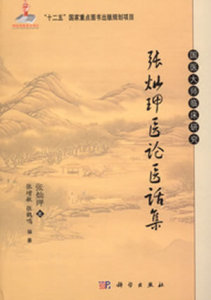 "十二五"国家重点图书出版规划项目
国医大师临床研究
张灿玾医论医话集
张灿玾 著
张增敏 张鹤鸣 编著
科学出版社